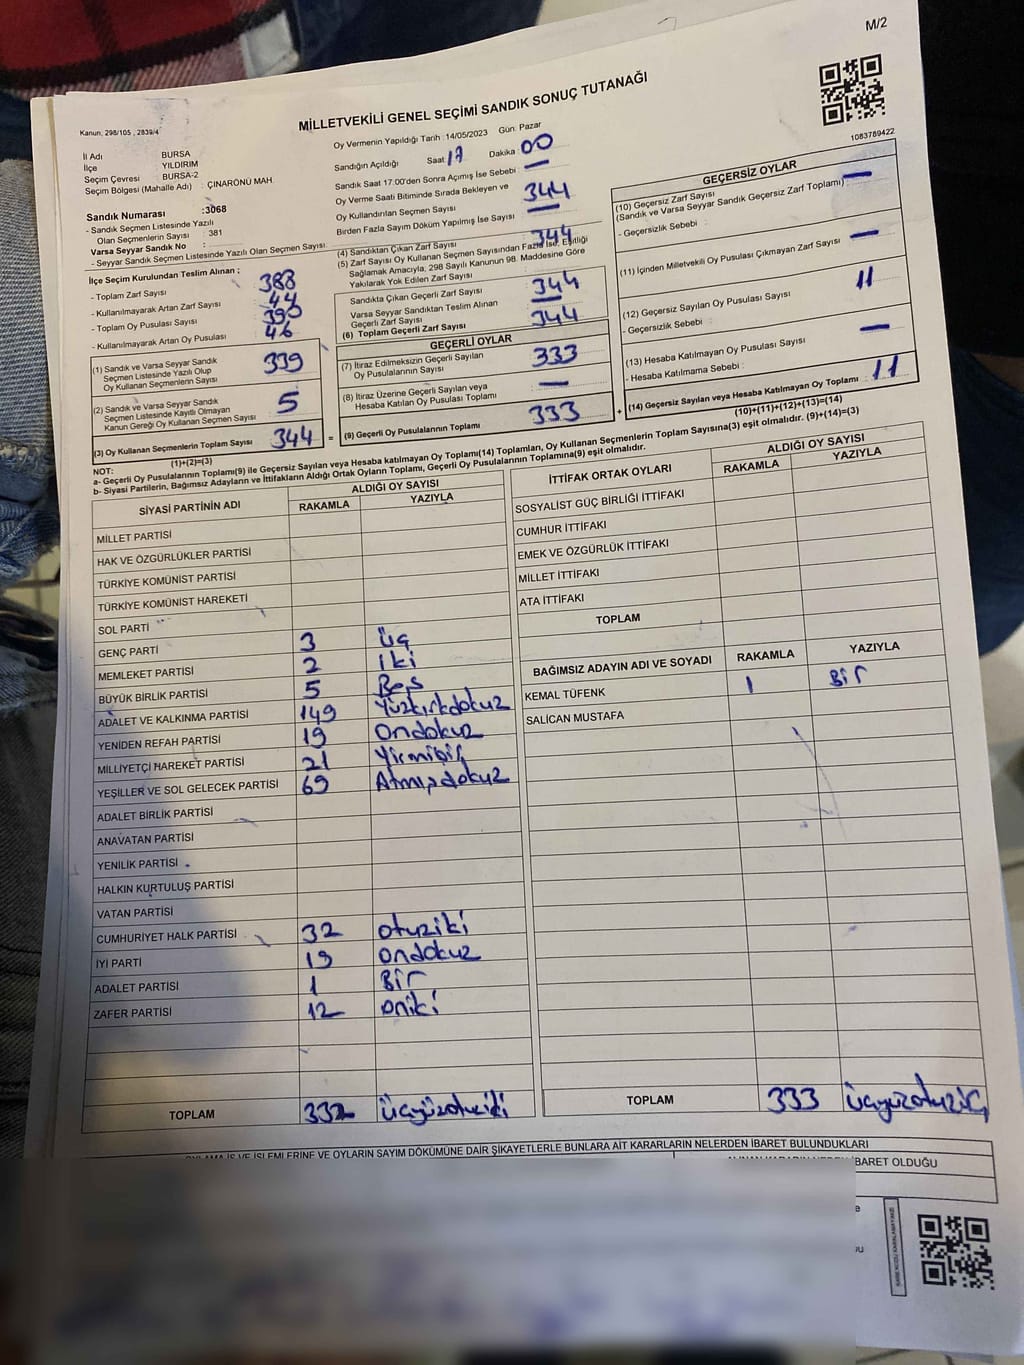 M/2
Kanun, 298/105 , 2839/4
MİLLETVEKİLİ GENEL SEÇİMİ SANDIK SONUÇ TUTANAĞI
1083789422
İl Adı BURSA
İlçe YILDIRIM
Seçim Çevresi BURSA-2
Seçim Bölgesi (Mahalle Adı) : ÇINARÖNÜ MAH
Sandık Numarası :3068
- Sandık Seçmen Listesinde Yazılı
Olan Seçmenlerin Sayısı : 381
Varsa Seyyar Sandık No :
- Seyyar Sandık Seçmen Listesinde Yazılı Olan Seçmen Sayısı:
İlçe Seçim Kurulundan Teslim Alınan :
- Toplam Zarf Sayısı 388
- Kullanılmayarak Artan Zarf Sayısı 44
- Toplam Oy Pusulası Sayısı 390
- Kullanılmayarak Artan Oy Pusulası 46
(1) Sandık ve Varsa Seyyar Sandık
Seçmen Listesinde Yazılı Olup
Oy Kullanan Seçmenlerin Sayısı 339
(2) Sandık ve Varsa Seyyar Sandık
Seçmen Listesinde Kayıtlı Olmayan
Kanun Gereği Oy Kullanan Seçmen Sayısı 5
(3) Oy Kullanan Seçmenlerin Toplam Sayısı 344 =
(1)+(2)=(3)
Oy Vermenin Yapıldığı Tarih : 14/05/2023 Gün: Pazar
Sandığın Açıldığı Saat: 17 Dakika : 00
Sandık Saat 17.00'den Sonra Açımış İse Sebebi : —
Oy Verme Saati Bitiminde Sırada Bekleyen ve
Oy Kullandırılan Seçmen Sayısı 344
Birden Fazla Sayım Döküm Yapılmış İse Sayısı : —
(4) Sandıktan Çıkan Zarf Sayısı 344
(5) Zarf Sayısı Oy Kullanan Seçmen Sayısından Fazla İse, Eşitliği
Sağlamak Amacıyla, 298 Sayılı Kanunun 98. Maddesine Göre
Yakılarak Yok Edilen Zarf Sayısı :
Sandıkta Çıkan Geçerli Zarf Sayısı 344
Varsa Seyyar Sandıktan Teslim Alınan
Geçerli Zarf Sayısı —
(6) Toplam Geçerli Zarf Sayısı 344
GEÇERLİ OYLAR
(7) İtiraz Edilmeksizin Geçerli Sayılan
Oy Pusulalarının Sayısı 333
(8) İtiraz Üzerine Geçerli Sayılan veya
Hesaba Katılan Oy Pusulası Toplamı —
(9) Geçerli Oy Pusulalarının Toplamı 333 +
GEÇERSİZ OYLAR
(10) Geçersiz Zarf Sayısı
(Sandık ve Varsa Seyyar Sandık Geçersiz Zarf Toplamı) —
- Geçersizlik Sebebi :
(11) İçinden Milletvekili Oy Pusulası Çıkmayan Zarf Sayısı —
(12) Geçersiz Sayılan Oy Pusulası Sayısı 11
- Geçersizlik Sebebi :
(13) Hesaba Katılmayan Oy Pusulası Sayısı —
- Hesaba Katılmama Sebebi :
(14) Geçersiz Sayılan veya Hesaba Katılmayan Oy Toplamı 11
(10)+(11)+(12)+(13)=(14)
NOT:
a- Geçerli Oy Pusulalarının Toplamı(9) ile Geçersiz Sayılan veya Hesaba katılmayan Oy Toplamı(14) Toplamları, Oy Kullanan Seçmenlerin Toplam Sayısına(3) eşit olmalıdır. (9)+(14)=(3)
b- Siyasi Partilerin, Bağımsız Adayların ve İttifakların Aldığı Ortak Oyların Toplamı, Geçerli Oy Pusulalarının Toplamına(9) eşit olmalıdır.
SİYASİ PARTİNİN ADI ALDIĞI OY SAYISI
RAKAMLA YAZIYLA
MİLLET PARTİSİ
HAK VE ÖZGÜRLÜKLER PARTİSİ
TÜRKİYE KOMÜNİST PARTİSİ
TÜRKİYE KOMÜNİST HAREKETİ
SOL PARTİ
GENÇ PARTİ 3 üç
MEMLEKET PARTİSİ 2 iki
BÜYÜK BİRLİK PARTİSİ 5 Beş
ADALET VE KALKINMA PARTİSİ 149 Yüzkırkdokuz
YENİDEN REFAH PARTİSİ 19 Ondokuz
MİLLİYETÇİ HAREKET PARTİSİ 21 Yirmibir
YEŞİLLER VE SOL GELECEK PARTİSİ 69 Atmışdokuz
ADALET BİRLİK PARTİSİ
ANAVATAN PARTİSİ
YENİLİK PARTİSİ
HALKIN KURTULUŞ PARTİSİ
VATAN PARTİSİ
CUMHURİYET HALK PARTİSİ 32 otuziki
İYİ PARTİ 19 ondokuz
ADALET PARTİSİ 1 Bir
ZAFER PARTİSİ 12 oniki
TOPLAM 332 üçyüzotuziki
İTTİFAK ORTAK OYLARI ALDIĞI OY SAYISI
RAKAMLA YAZIYLA
SOSYALİST GÜÇ BİRLİĞİ İTTİFAKI
CUMHUR İTTİFAKI
EMEK VE ÖZGÜRLÜK İTTİFAKI
MİLLET İTTİFAKI
ATA İTTİFAKI
TOPLAM
BAĞIMSIZ ADAYIN ADI VE SOYADI RAKAMLA YAZIYLA
KEMAL TÜFENK 1 Bir
SALİCAN MUSTAFA
TOPLAM 333 üçyüzotuzüç
OYLAMA İŞ VE İŞLEMLERİNE VE OYLARIN SAYIM DÖKÜMÜNE DAİR ŞİKAYETLERLE BUNLARA AİT KARARLARIN NELERDEN İBARET BULUNDUKLARI
İBARET OLDUĞU